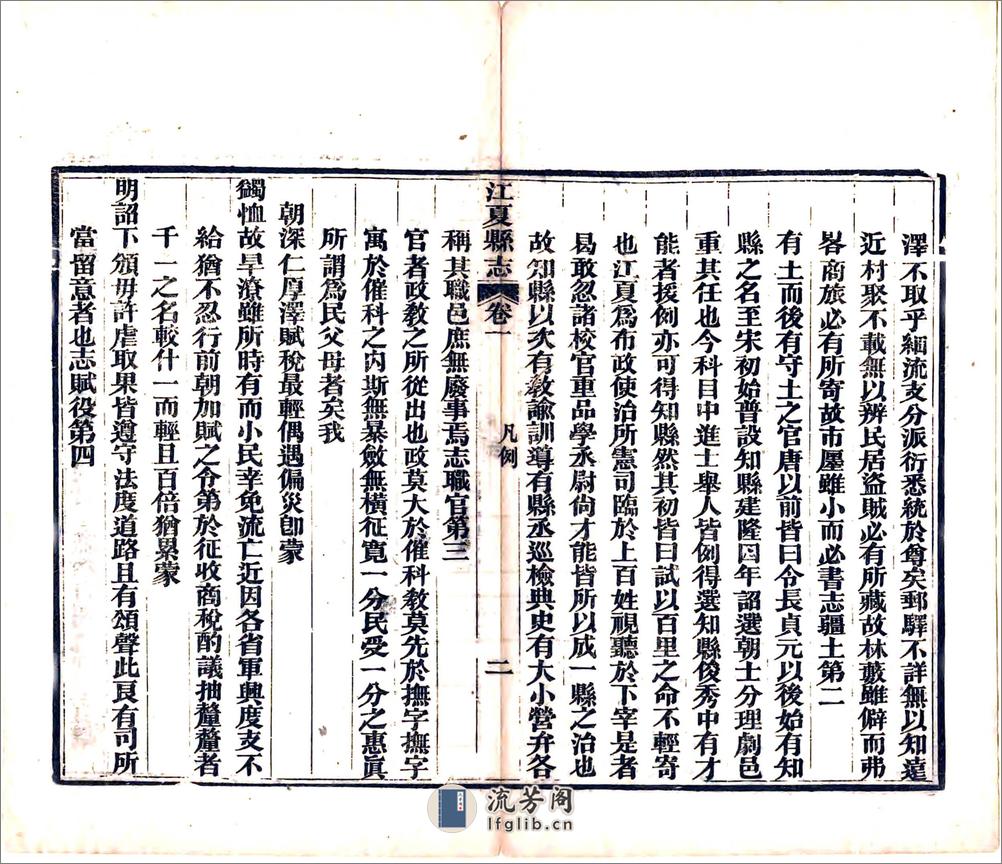 澤不取乎細流支分派衍悉統於尊矣郵驛不詳無以知遠
近村聚不載無以辨民居盜賊必有所藏故林藪雖僻而弗
畧商旅必有所寄故市廛雖小而必書志疆土第二
有土而後有守土之官唐以前皆曰令長貞元以後始有知
縣之名至宋初始普設知縣建隆四年詔選朝士分理劇邑
重其任也今科目中進士舉人皆例得選知縣俊秀中有才
能者援例亦可得知縣然其初皆曰試以百里之命不輕寄
也江夏爲布政使治所憲司臨於上百姓視聽於下宰是者
曷敢忽諸校官重品學丞尉尙才能皆所以成一縣之治也
故知縣以次有敎諭訓導有縣丞巡檢典史有大小營弁各
江夏縣志 卷 凡例 二
稱其職邑庶無廢事焉志職官第三
官者政敎之所從出也政莫大於催科敎莫先於撫字撫字
寓於催科之内斯無暴斂無橫征寬一分民受一分之惠眞
所謂爲民父母者矣我
朝深仁厚澤賦稅最輕偶遇偏災卽蒙
蠲恤故旱潦雖所時有而小民幸免流亡近因各省軍興度支不
給猶不忍行前朝加賦之令第於征收商稅酌議抽釐釐者
千一之名較什一而輕且百倍猶累蒙
明詔下頒毋許虐取果皆遵守法度道路且有頌聲此良有司所
當留意者也志賦役第四
流芳閣
lfglib.cn